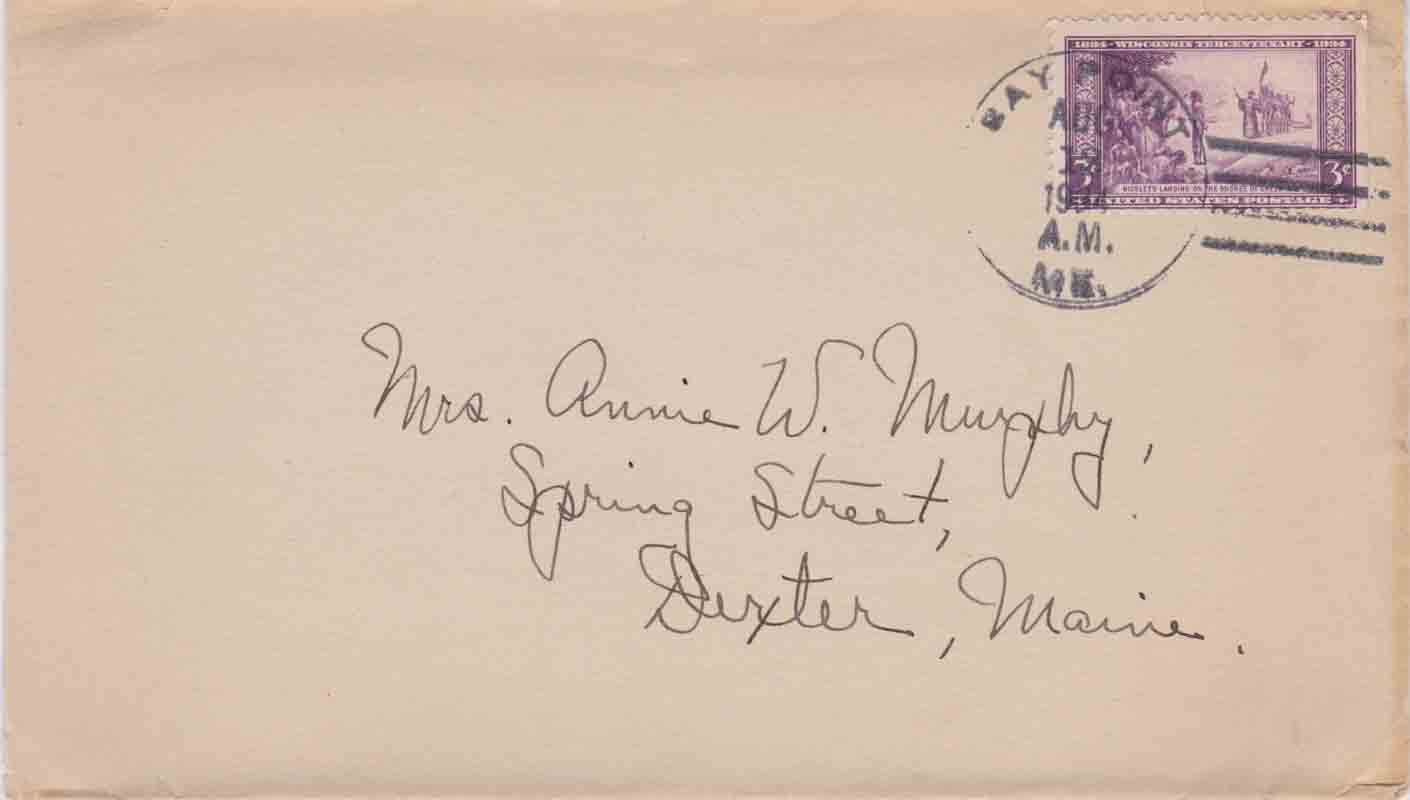 1634 · WISCONSIN TERCENTENARY · 1934
BAY POINT
AUG
A.M.
ME.
3¢ 3¢
NICOLET'S LANDING ON THE SHORES OF
UNITED STATES POSTAGE
Mrs. Annie W. Murphy,
Spring Street,
Dexter, Maine.